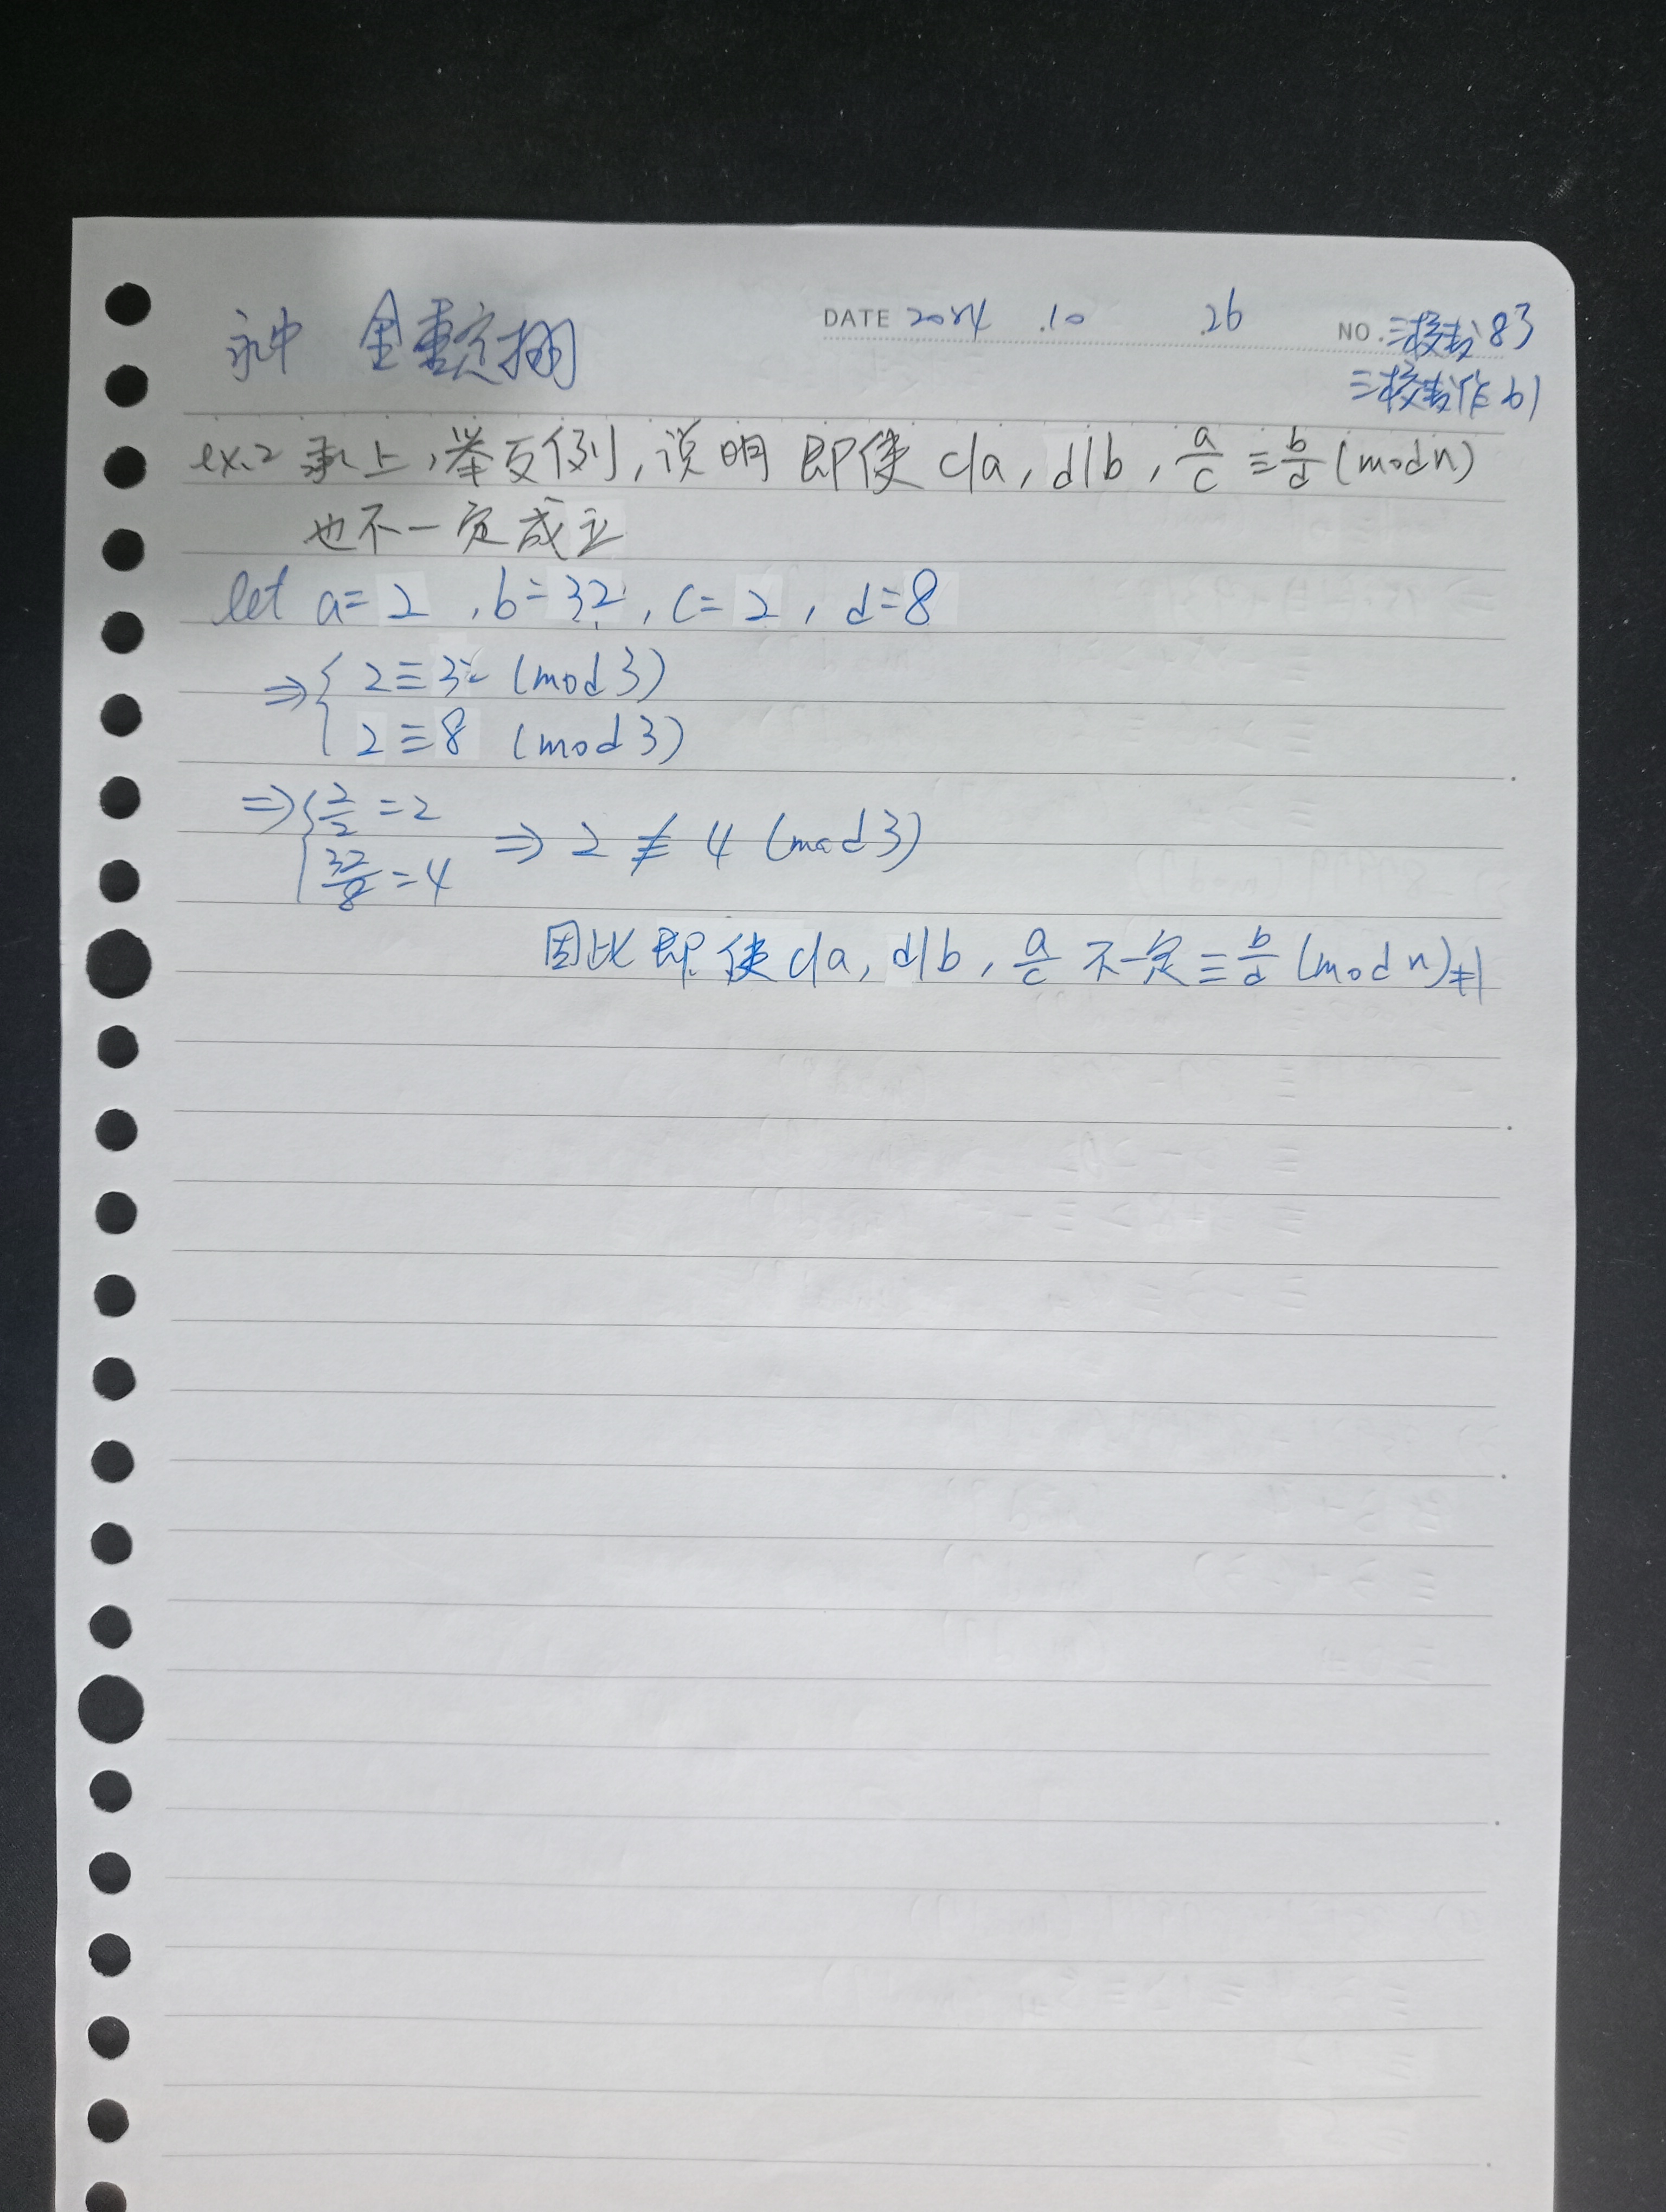 永中
DATE 2024 .10 .26 NO. 三校書83
三校書作61
ex.2 承上,举反例,说明 即使 c|a, d|b, a/c ≡ b/d (mod n)
也不一定成立
let a=2, b=32, c=2, d=8
⇒{ 2≡32 (mod 3)
2≡8 (mod 3)
⇒{ 2/2 =2
32/8 =4 ⇒ 2 ≢ 4 (mod 3)
因此 即使 c|a, d|b, a/c 不一定 ≡ b/d (mod n)#